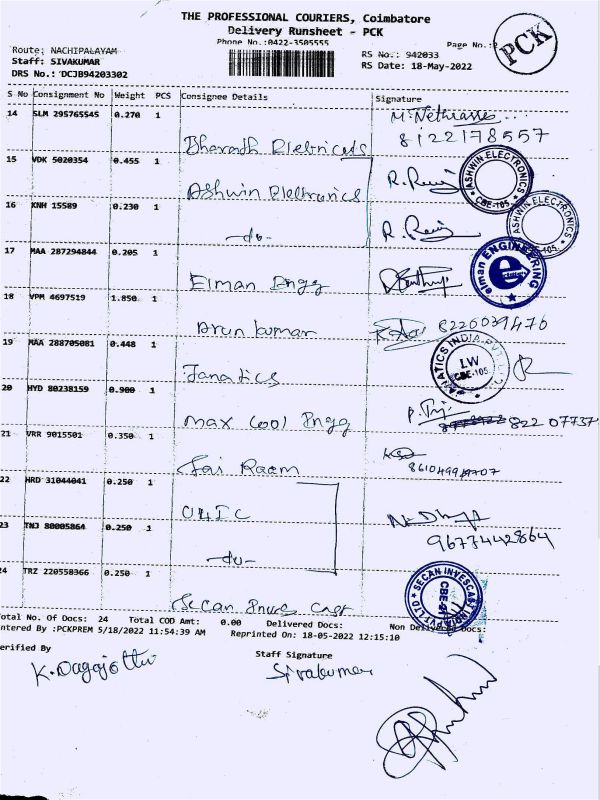 THE PROFESSIONAL COURIERS, Coimbatore
Delivery Runsheet - PCK
Phone No.:0422-3505555
Page No.:2
PCK
Route: NACHIPALAYAM
Staff: SIVAKUMAR
DRS No.: DCJB94203302
RS No.: 942033
RS Date: 18-May-2022
S No Consignment No Weight PCS Consignee Details Signature
14 SLM 295765545 0.270 1
8122178557
Bharath
15 VDK 5020354 0.455 1
Ashwin Electronics
ASHWIN ELECTRONICS
CBE-105.
16 KNH 15589 0.230 1
-do-
ASHWIN ELECTRONICS
17 MAA 287294844 0.205 1
Elman Engg
elman ENGINEERING
18 VPM 4697519 1.850 1
Arun kumar
8220039470
19 MAA 288705081 0.448 1
Fanatics
LW
CBE-105
20 HYD 80238159 0.900 1
Max Cool Engg
822 07737
21 VRR 9015501 0.350 1
Sai Raam
22 HRD 31044041 0.250 1
9677442864
23 TNJ 80005864 0.250 1
-do-
24 TRZ 220558366 0.250 1
Secan Cast
SECAN INVESCAST INDIA PVT LTD
Total No. Of Docs: 24 Total COD Amt: 0.00 Delivered Docs: Non Delivered Docs:
Entered By :PCKPREM 5/18/2022 11:54:39 AM Reprinted On: 18-05-2022 12:15:10
Verified By Staff Signature
Sivakumar